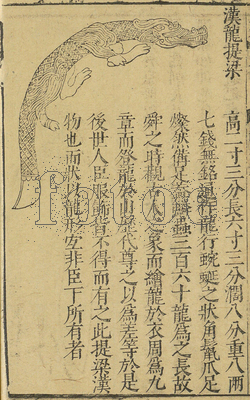 漢龍提梁
高二寸三分長六寸三分濶八分重八兩
七錢無銘通作龍行蜿蜒之狀角髯爪足
燦然備足盖鱗蟲三百六十龍為之長故
舜之時觀古人之象而繪龍於衣周為九
章而登龍於山歷代尊之以為差等於是
後世人臣服飾皆不得而有之此提梁漢
物也而狀以龍形定非臣下所有者
fotoe